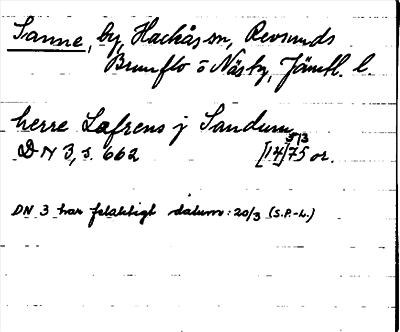 Sanne, by, Hackås sn, Revsunds
Brunflo o Näs tg, Jämtl. l.
herre Lafrens j Sandum
5/3
DN 3, s. 662 [14]75 or.
DN 3 har felaktigt datum: 20/3 (S.P.-L.)